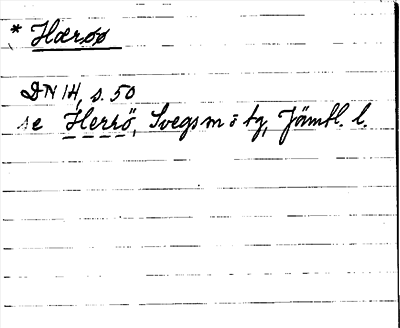 * Hærøø
DN 14, s. 50
se Herrö, Svegs m:a tg, Jämtl. l.